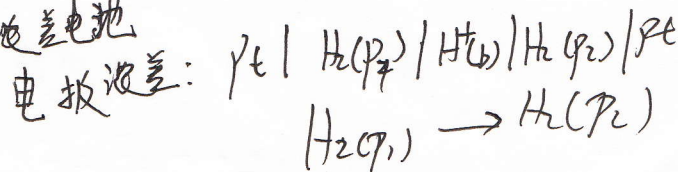 浓差电池
电极浓差: Pt | H₂(p₁) | H⁺(b) | H₂(p₂) | Pt
H₂(p₁) → H₂(p₂)